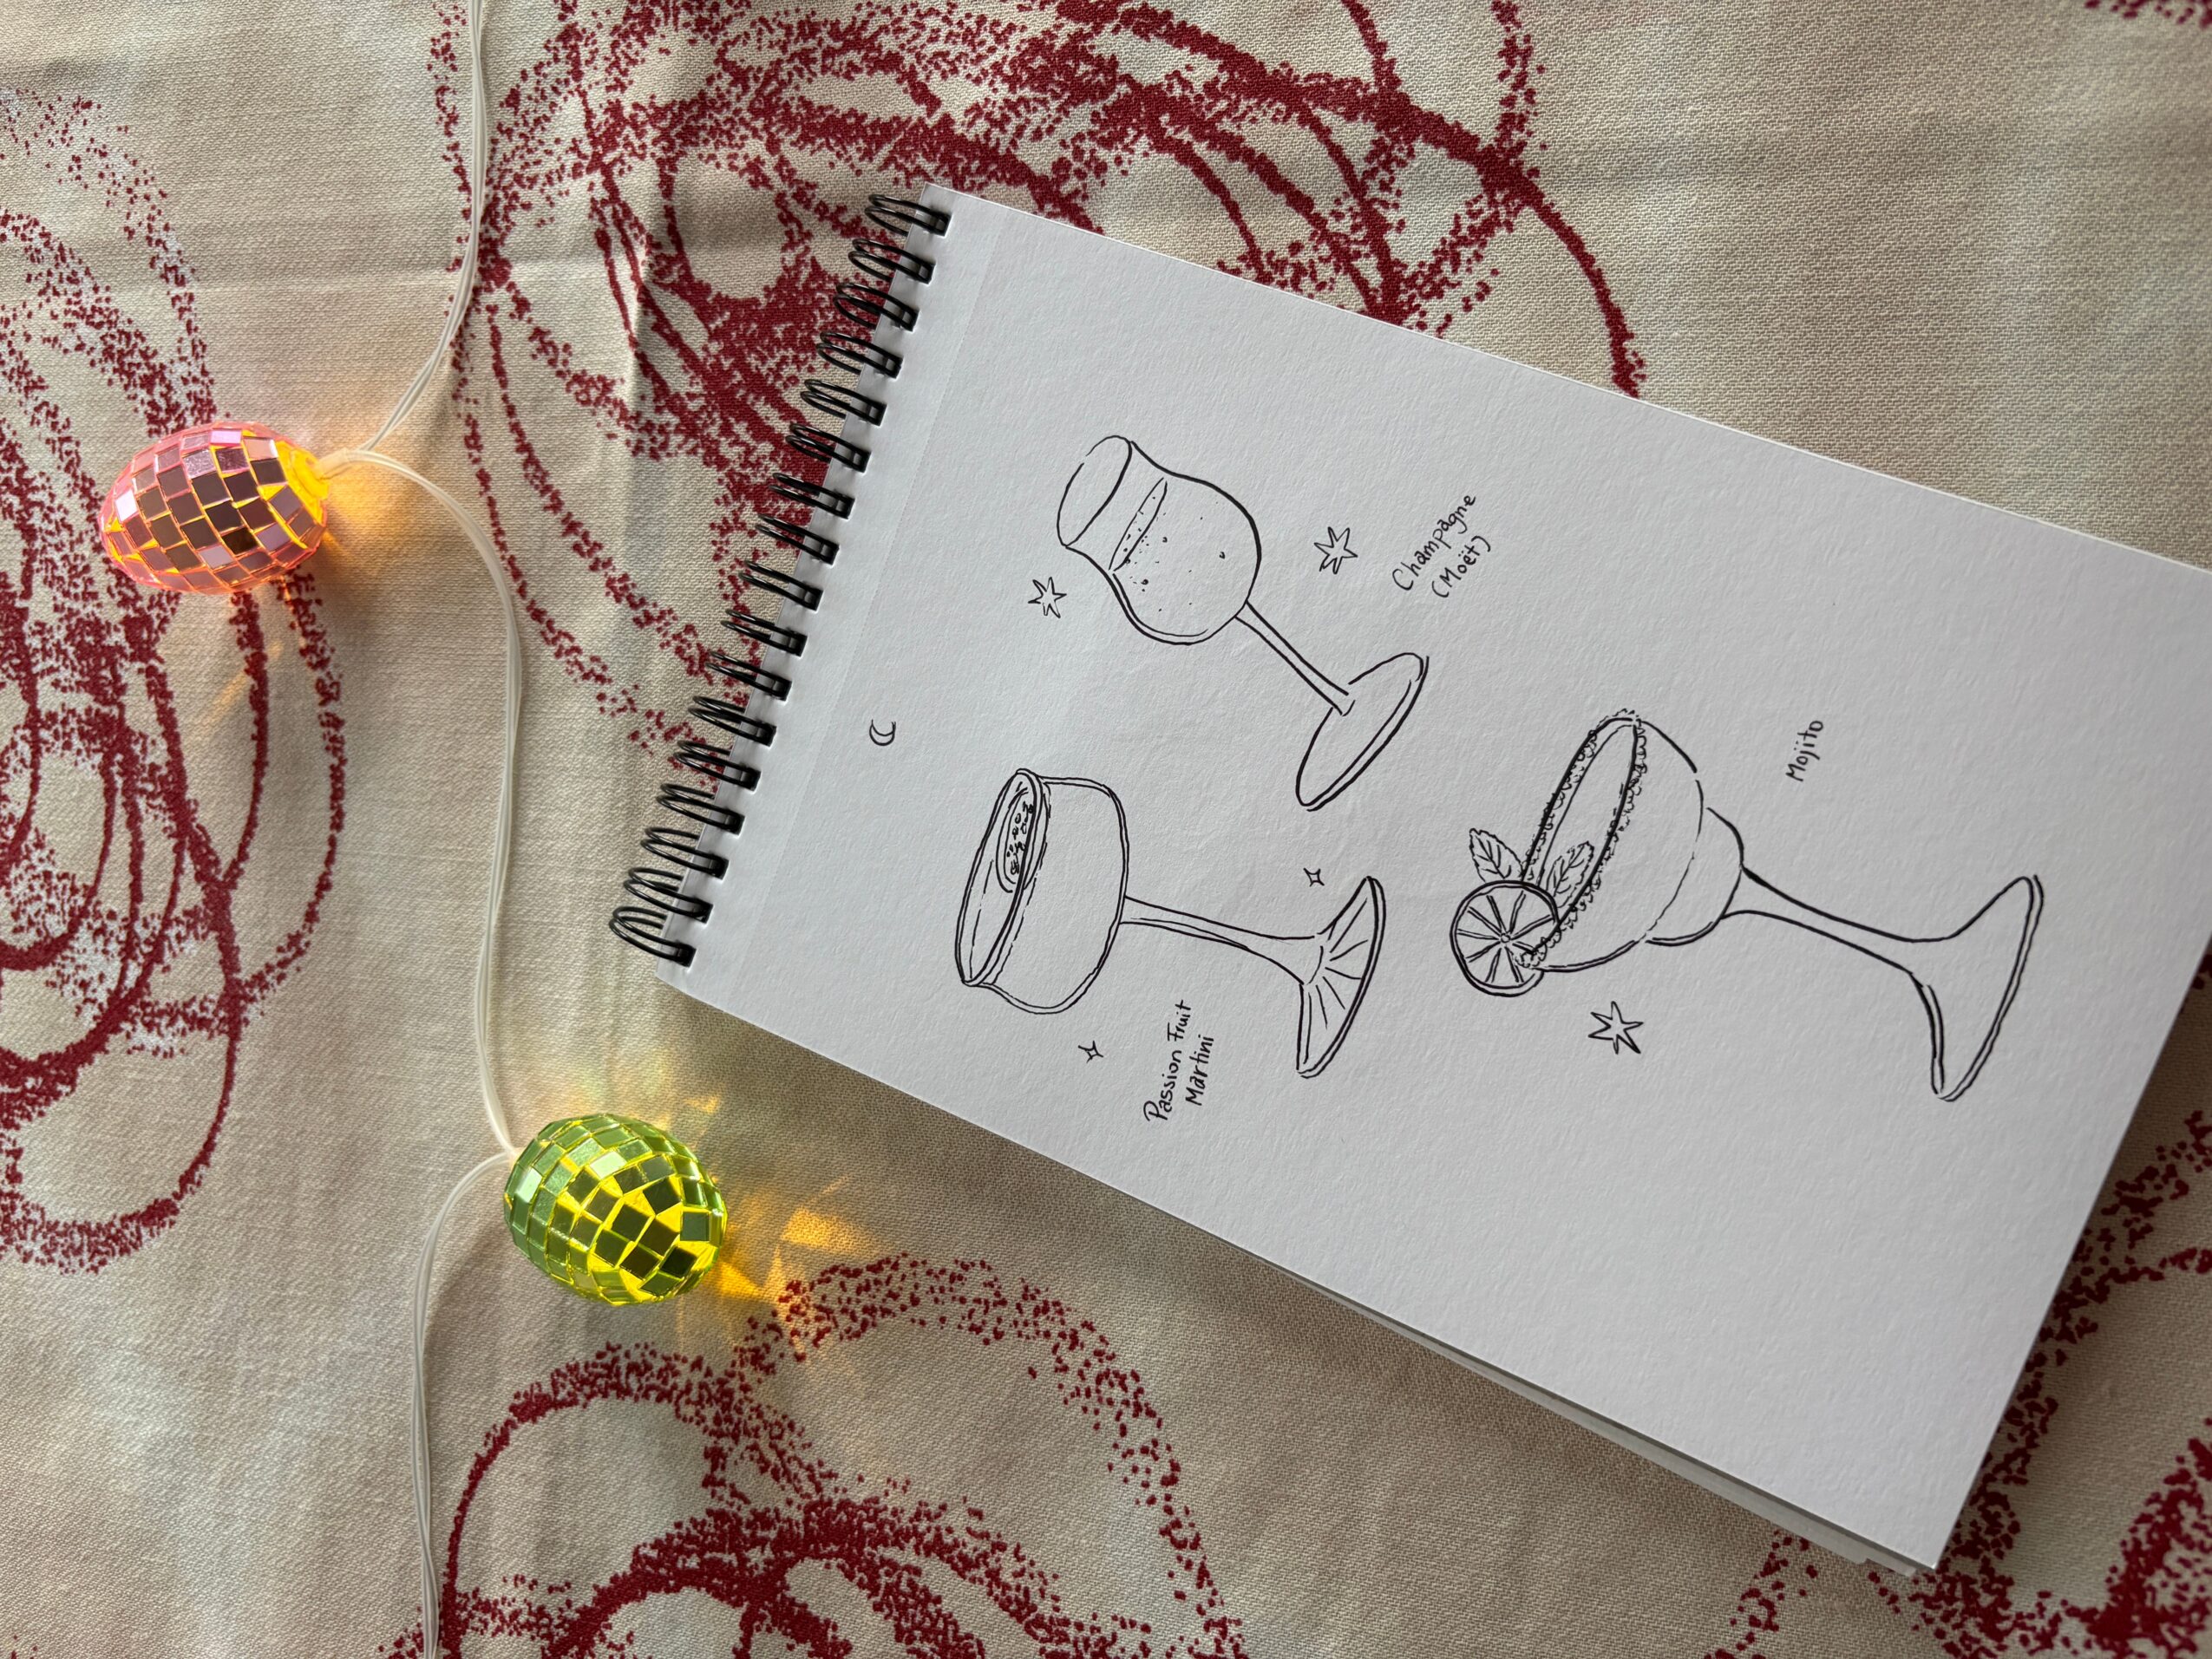 Passion Fruit
Martini
Champagne
(Moët)
Mojito